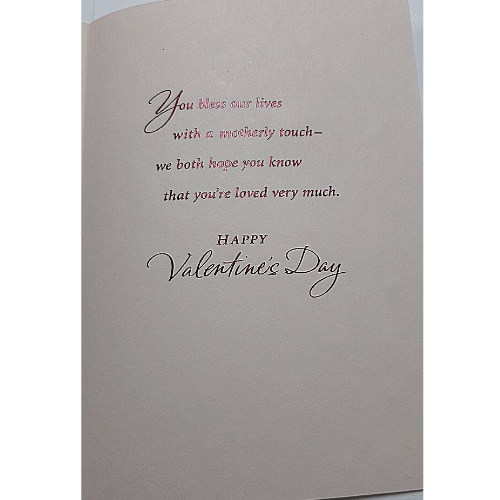 You bless our lives
with a motherly touch—
we both hope you know
that you're loved very much.
HAPPY
Valentine's Day